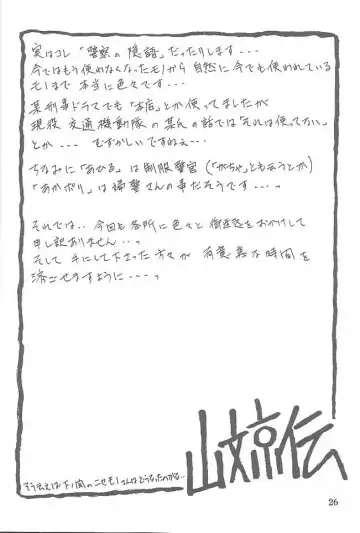 実はコレ「警察の隠語」だったりします・・・
今ではもう使われなくなったモノから自然に今でも使われている
モノまで本当に色々です・・・
某刑事ドラマでも「本店」とか使ってましたが
現役交通機動隊の某氏の話では「それは使ってない」
とか・・・ むずかしいですねぇ・・
ちなみに「あひる」は制服警官(「がちゃ」とも云うとか)
「あかポリ」は婦警さんの事だそうです・・・。
それでは・・今回も各所に色々と御迷惑をおかけして
申し訳ありません・・・。
そして手にして下さった方々が有意義な時間を
過ごせますように・・・・。
そう云えば下ノ関のニセモノさんはどうなったのかな・・
山文京伝
26